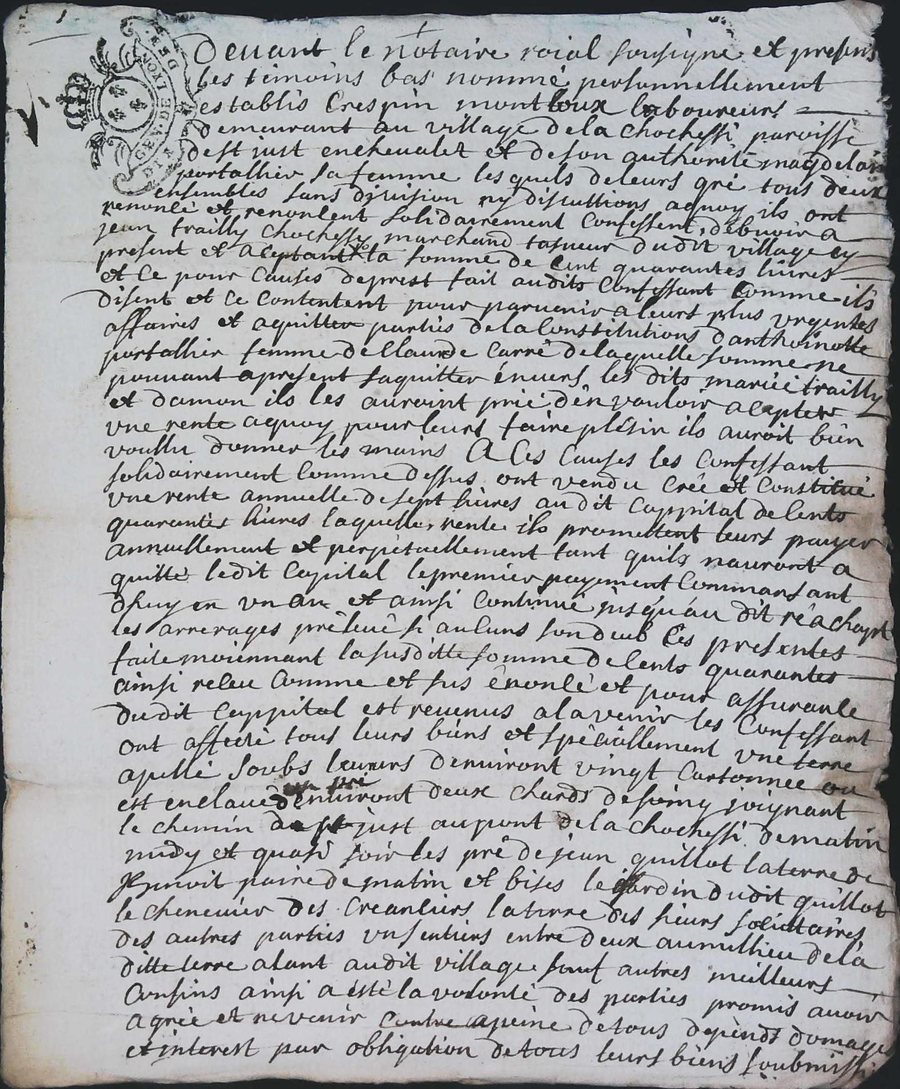 1
GEN. DE LYON
Devant le notaire roial sousigné et presens
les temoins bas nommé personnellement
establis Crespin montloux laboureurs
demeurant au village dela chochessi paroisse
de st just enchevalet et deson authorité magdelai
portallier sa femme lesquels deleurs gré tous deux
ensembles sans division ny discuttions aquoy ils ont
renonsé et renonsent solidairement Confessent debvoir a
jean trailly chochessi marchand tasneur dudit village cy
present et aceptant la somme de cent quarantes livres
et ce pour causes deprest fait audits Confessant Comme ils
disent et ce Contentent pour parvenir aleurs plus urgentes
affaires et aquitter parties dela Constitutions d'anthoinette
portallier femme de Claude Carré delaquelle somme ne
pouvant apresent saquitter envers les dits mariée trailly
et damon ils les auroint prié d'en vouloir acepter
une rente aquoy pour leurs faire plésir ils auroit bien
voullu donner les mains A Ces Causes les Confessant
solidairement Comme dessus ont vendu Créé et Constitué
une rente annuelle desept livres audit Cappital de Cents
quarantes livres laquelle rente ils promettent leurs payer
annuellement et perpetuellement tant quils nauront a
quitté ledit Capital lepremier payement Commansant
dhuy en un an et ainsi Continué jusquau dit réachapt
les arrerages préleué si aulcuns sondeub Ces presentes
faite moiennant la susditte somme de Cents quarantes
ainsi releu Comme et sus énonsé et pour assuranse
dudit Cappital est revenus alavenir les Confessant
ont affecté tous leurs biens et spéciallement une terre
apellé soubs denviront vingt Cartonnée ou
est enclavé un pré denviront deux chards desoing joignant
le chemin de st just aupont dela chochessi dematin
midy et quasi soir les pré de jean quillot laterre de
benoit paire de matin et bises le jardin dudit quillot
le chenevier des Creantiers laterre des sieurs
des autres parties un sentiers entre deux aumilhieu dela
ditte terre alant audit village sauf autres meilleurs
Confins ainsi a esté la volonté des parties promis avoir
agréé et nevenir contre apeine detous depends domage
et interest par obligation detous leurs biens soubmissi